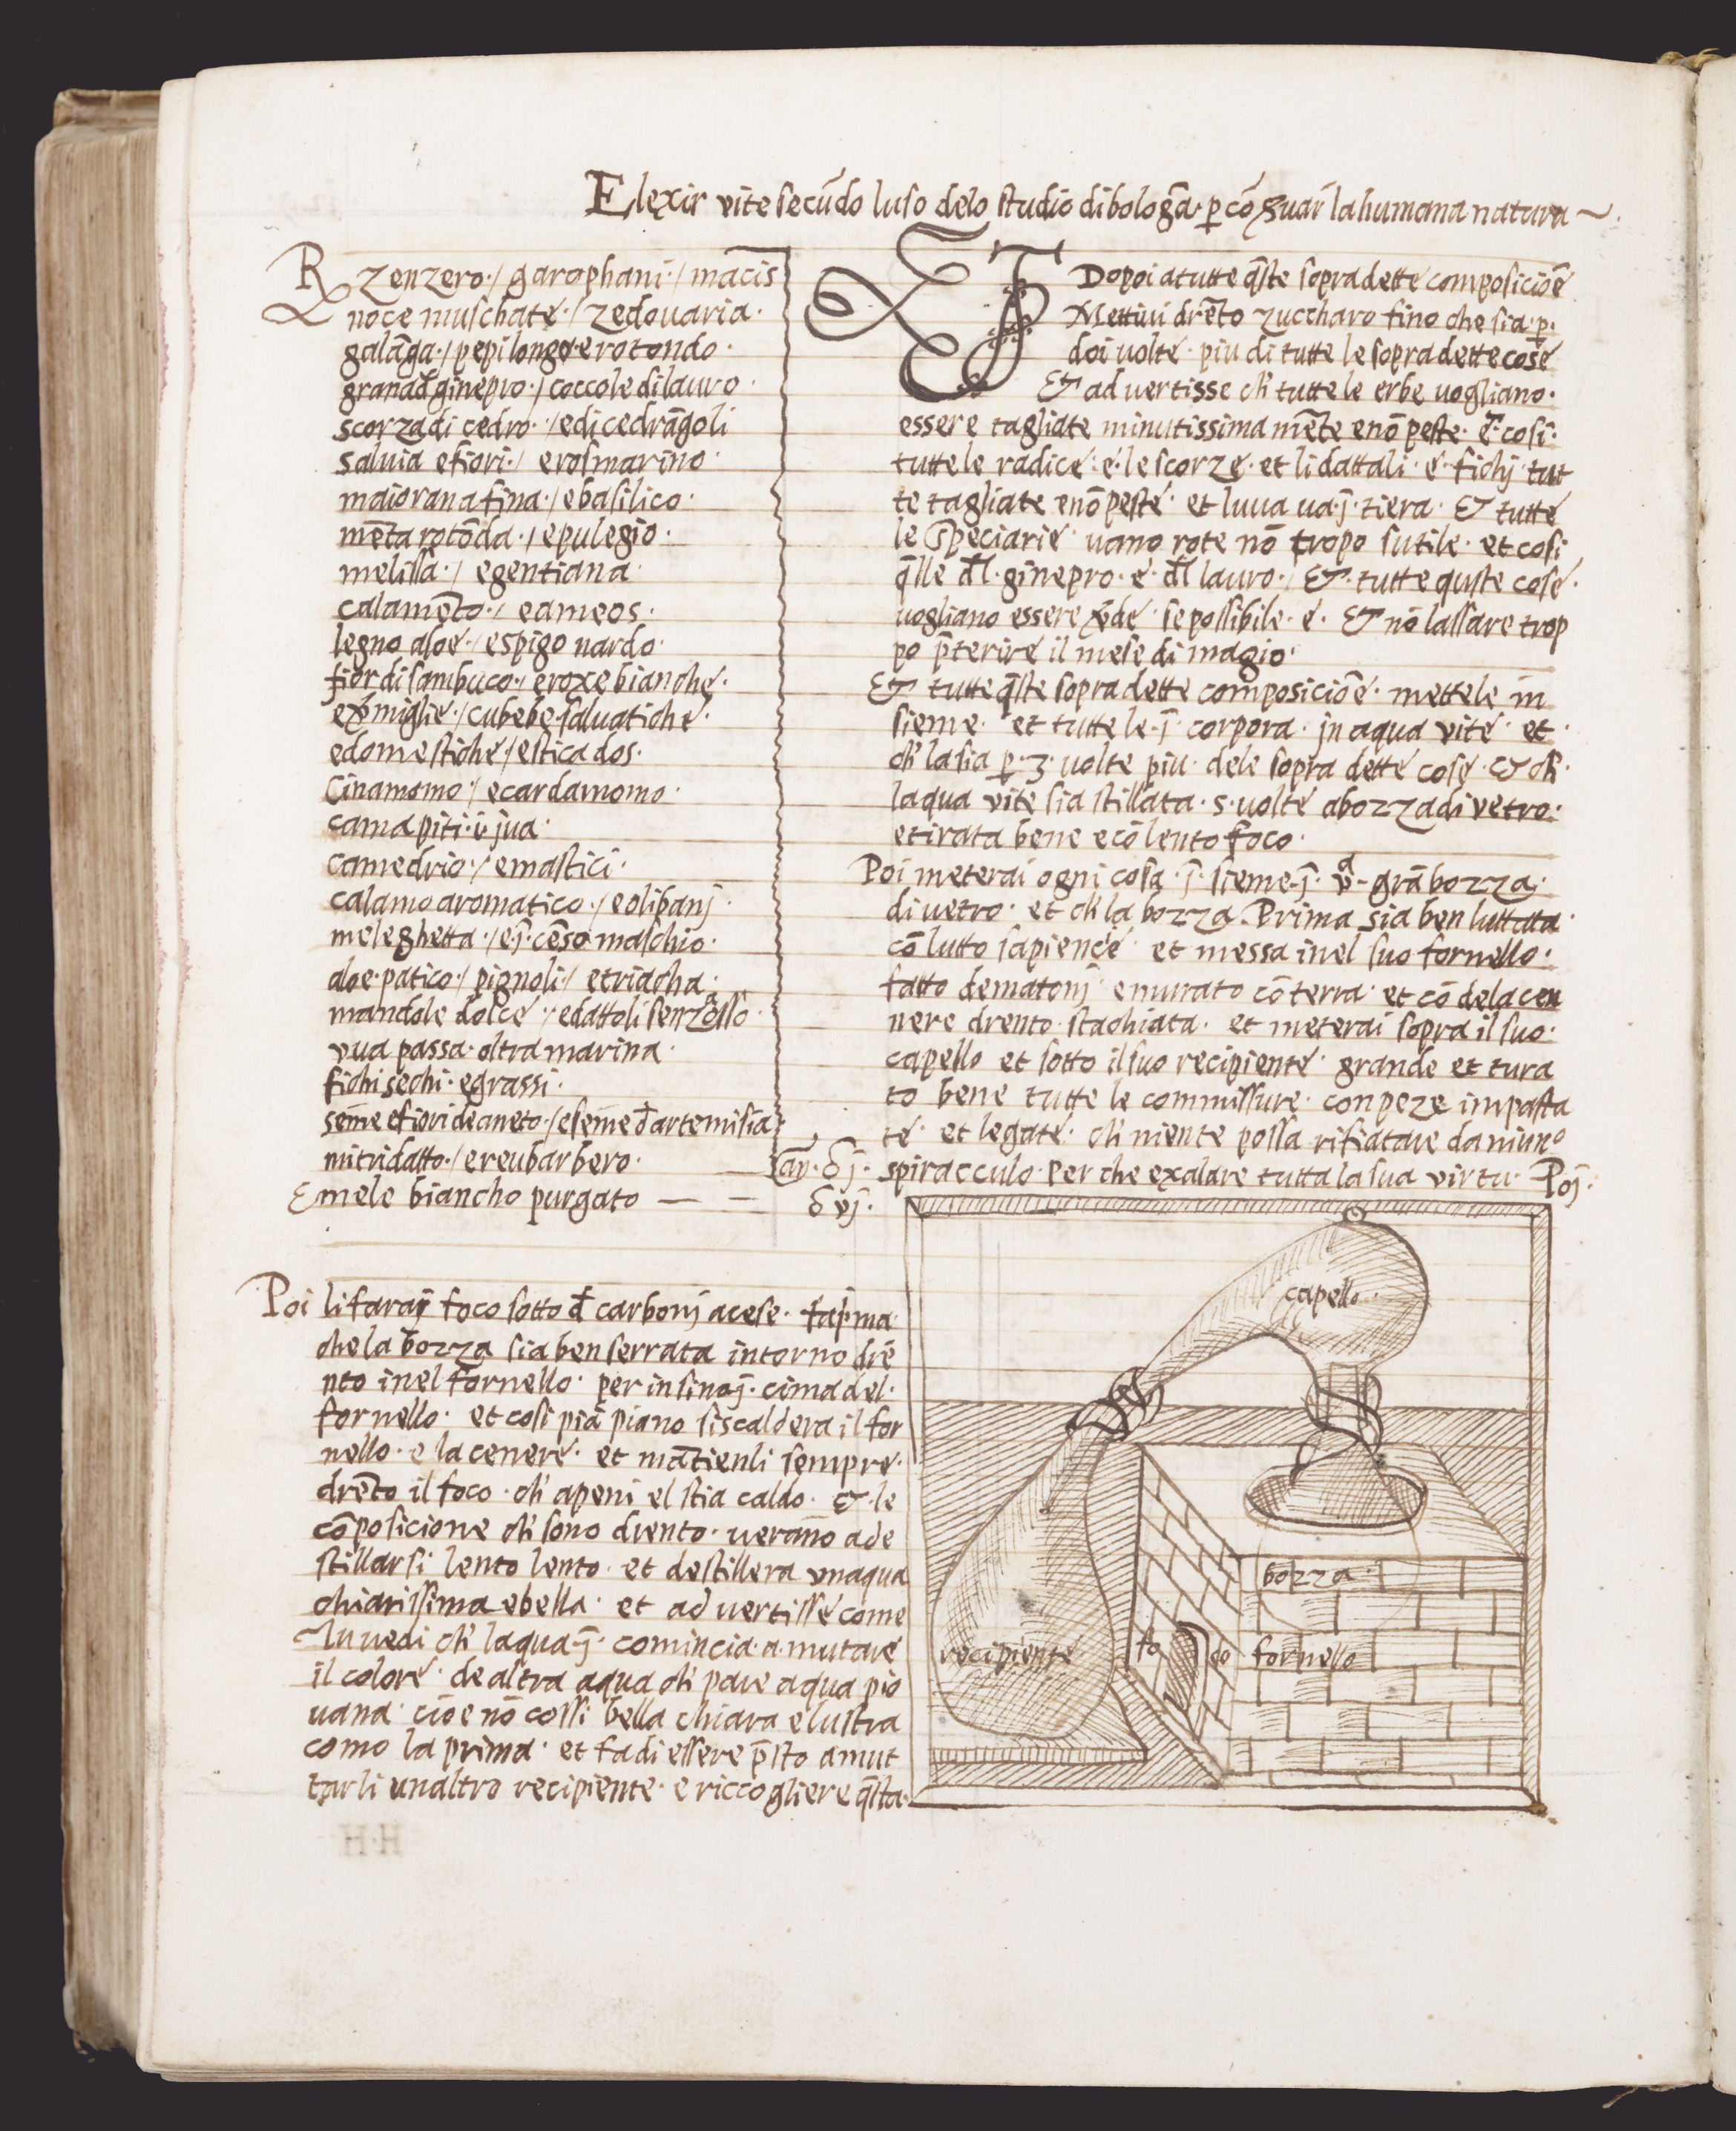 Elexir vite secūdo luso delo studio di bologā̃a · ꝑ cōẜuar̄ la humana natura ~
R zenzero · / garophani · / macis
noce muschate · / zedouaria ·
galāga · / pepi longo e rotondo ·
grana đ ginepro · / coccole di lauro ·
scorza di cedro · / e di cedrāgoli
saluia e fiori · / e rosmarino ·
maiorana fina · / e basilico ·
mēta rotōda · / e pulegio ·
melissa · / e gentiana ·
calamēto · / e ameos ·
legno aloe · / e spigo nardo ·
fior di sambuco · / e roxe bianche ·
e v̄miglie · / cubebe saluatiche ·
e domestiche / e sticados ·
Cinamomo · / e cardamomo ·
camapiti · ī jua ·
camedrio · / e mastici ·
calamo aromatico · / e olibanj ·
meleghetta · / e j̄cēso maschio ·
aloe patico · / pignoli / e triacha ;
mandole dolce · / e dattoli senzosso ·
vua passa · oltra marina ·
fichi sechi · e grassi ·
seme e fiori de aneto · / e seme đ artemisia
mitridatto · / e reubarbero · — an · δj ·
E mele biancho purgato — — — δ vj ·
ET Dopoi a tutte q̄ste sopradette composiciōe
Mettiui drēto zuccharo fino che sia · ꝑ ·
doi uolte · piu di tutte le sopradette cose
Et aduertisse ch' tutte le erbe uogliano ·
essere tagliate minutissimamēte e nō peste · E cosi ·
tutte le radice · e · le scorze · et li dattali · e · fichj · tut
te tagliate e nō peste · et luua ua · j̄ · tiera · Et tutte
le Speciarie · uano rote nō tropo sutile · et cosi
q̄lle đl · ginepro · e · đl lauro · / Et · tutte quste cose ·
uogliano essere v̄de · se possibile · e · Et nō lassare trop
po p̄terire il mese di magio ·
Et tutte q̄ste sopradette composiciōe · mettele in
sieme · et tutte le · j̄ · corpora · jn aqua vite · et ·
ch' la sia ꝑ · 3 · uolte piu · dele sopra dette cose · et ch' ·
laqua vite sia stillata · 5 · uolte a bozza di vetro ·
e tirata bene e cō lento foco ·
Poi meterai ogni cosa · j̄ · sieme · j̄ · vᵃ · grā bozza ·
di uetro · et ch' la bozza · Prima sia ben luttata ·
cō lutto sapience · et messa inel suo fornello ·
fatto de matonj · e murato cō terra · et cō dela cen
nere drento stachiata · et meterai sopra il suo ·
capello et sotto il suo recipiente · grande et tura
to bene tutte le commissure · con peze impasta
te · et legate · ch' niente possa rifiatare da niuno
spiracculo · per che exalare tutta la sua virtu · Poj ·
Poi li faraj foco sotto đ carbonj acese · fa j̄ ma
che la bozza sia ben serrata intorno drē
nto inel fornello · per insino j̄ · cima del ·
fornello · et cosi piā piano si scaldera il for
nello · e la cenere · et mātienli sempre ·
drēto il foco · ch' apeni el stia caldo · et · le
cōposicione ch' sono drento · uerano a de
stillarsi lento lento · et destillera vnaqua
chiarissima e bella · et aduertisse come
tu uedi ch' laqua · j̄ · comincia · a · mutare
il colore · de altra aqua ch' pare aqua pio
uana · cioe nō cossi bella chiara e lustra
como la prima · et fa di essere p̄sto a mut
tarli unaltro recipiente · e riccogliere q̄sta ·
capello
bozza
recipiente
fo co
fornello